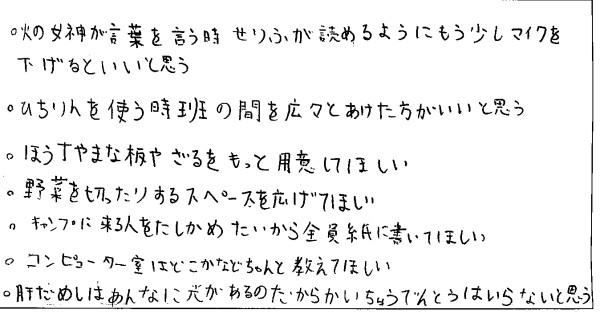 ○火の女神が言葉を言う時 せりふが読めるようにもう少しマイクを
下げるといいと思う
○ひちりんを使う時班の間を広々とあけた方がいいと思う
○ほうすやまな板や ざるをもっと用意してほしい
○野菜を切ったりするスペースを広げてほしい
○キャンプに来る人をたしかめたいから全員紙に書いてほしい
○コンピューター室はどこかなどちゃんと教えてほしい
○肝だめしはあんなに光があるのだからかいちゅうでんとうはいらないと思う